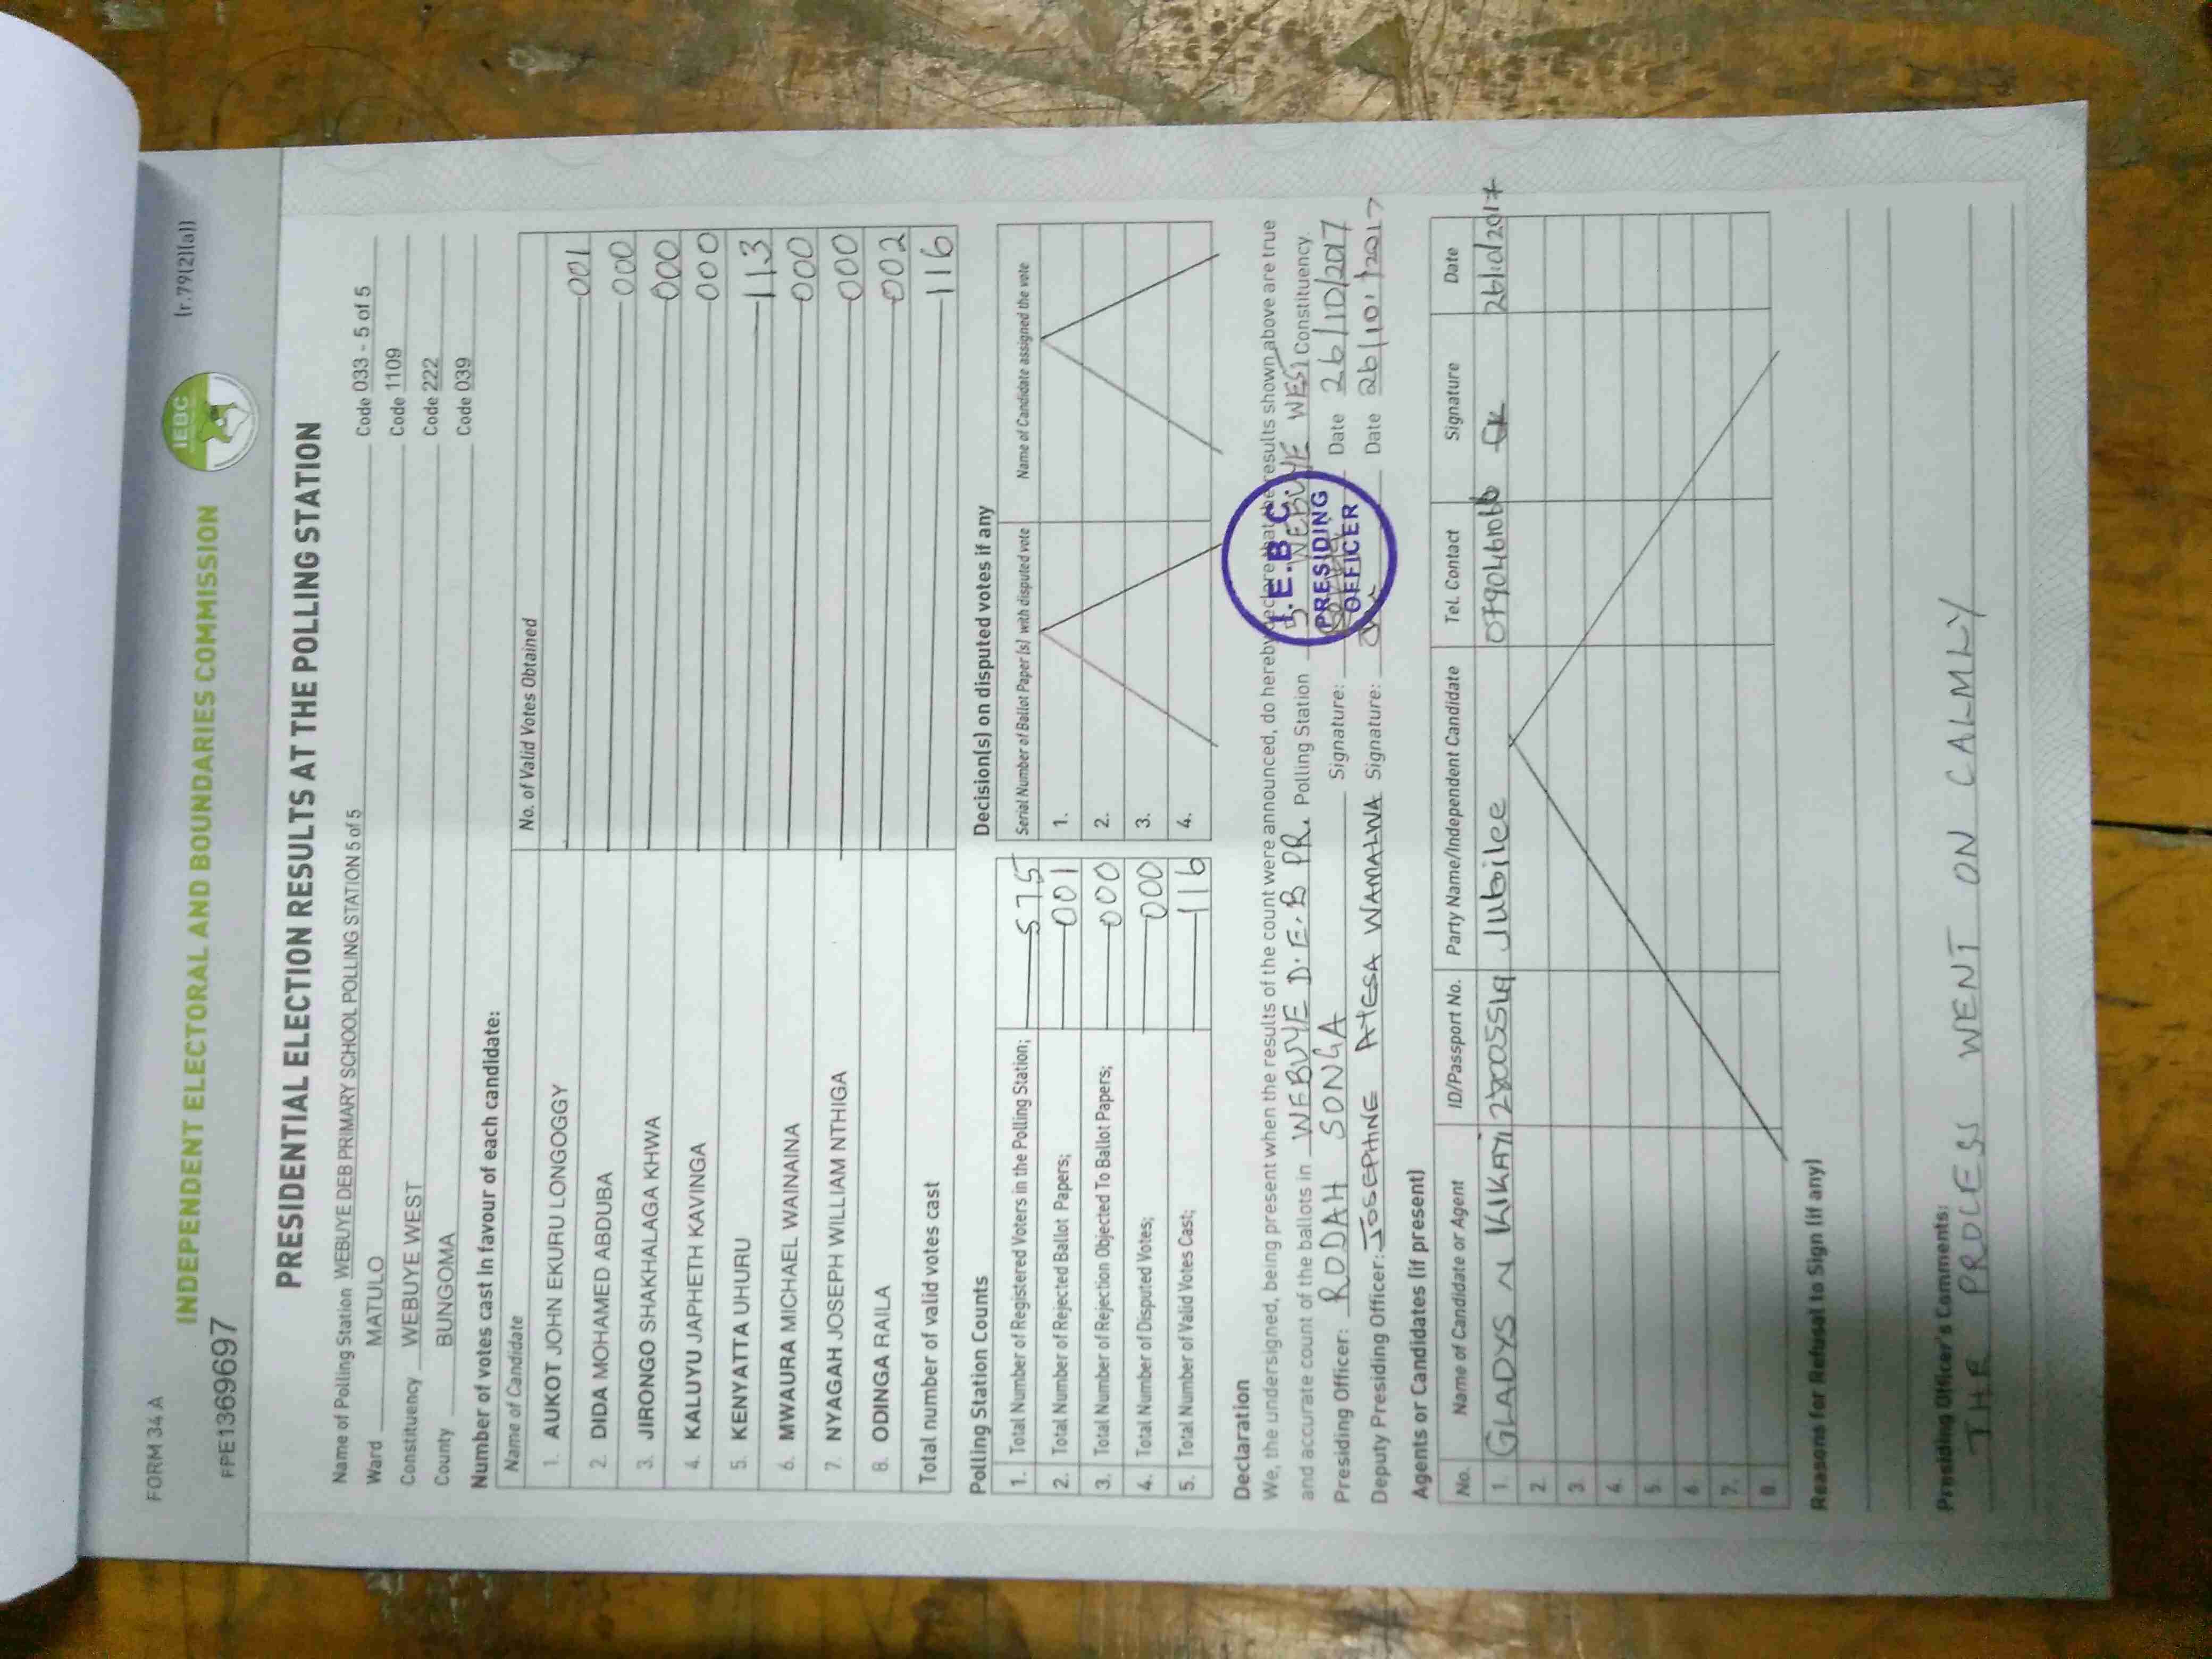 FORM 34 A
(r.79(2)(a))
INDEPENDENT ELECTORAL AND BOUNDARIES COMMISSION
IEBC
FPE1369697
PRESIDENTIAL ELECTION RESULTS AT THE POLLING STATION
Name of Polling Station WEBUYE DEB PRIMARY SCHOOL POLLING STATION 5 of 5 Code 033 - 5 of 5
Ward MATULO Code 1109
Constituency WEBUYE WEST Code 222
County BUNGOMA Code 039
Number of votes cast in favour of each candidate:
Name of Candidate No. of Valid Votes Obtained
1. AUKOT JOHN EKURU LONGOGGY 001
2. DIDA MOHAMED ABDUBA 000
3. JIRONGO SHAKHALAGA KHWA 000
4. KALUYU JAPHETH KAVINGA 000
5. KENYATTA UHURU 113
6. MWAURA MICHAEL WAINAINA 000
7. NYAGAH JOSEPH WILLIAM NTHIGA 000
8. ODINGA RAILA 002
Total number of valid votes cast 116
Polling Station Counts
1. Total Number of Registered Voters in the Polling Station; 575
2. Total Number of Rejected Ballot Papers; 001
3. Total Number of Rejection Objected To Ballot Papers; 000
4. Total Number of Disputed Votes; 000
5. Total Number of Valid Votes Cast; 116
Decision(s) on disputed votes if any
Serial Number of Ballot Paper (s) with disputed vote Name of Candidate assigned the vote
1.
2.
3.
4.
Declaration
We, the undersigned, being present when the results of the count were announced, do hereby declare that the results shown above are true
and accurate count of the ballots in WEBUYE D.E.B PR. Polling Station 5 WEBUYE WEST Constituency.
Presiding Officer: RODAH SONGA Signature: Date 26/10/2017
Deputy Presiding Officer: JOSEPHINE ATESA WAMALWA Signature: Date 26/10/2017
I.E.B.C
PRESIDING
OFFICER
Agents or Candidates (if present)
No. Name of Candidate or Agent ID/Passport No. Party Name/Independent Candidate Tel. Contact Signature Date
1. GLADYS N Jubilee 26/10/2017
2.
3.
4.
5.
6.
7.
8.
Reasons for Refusal to Sign (if any)
Presiding Officer's Comments:
THE PROCESS WENT ON CALMLY